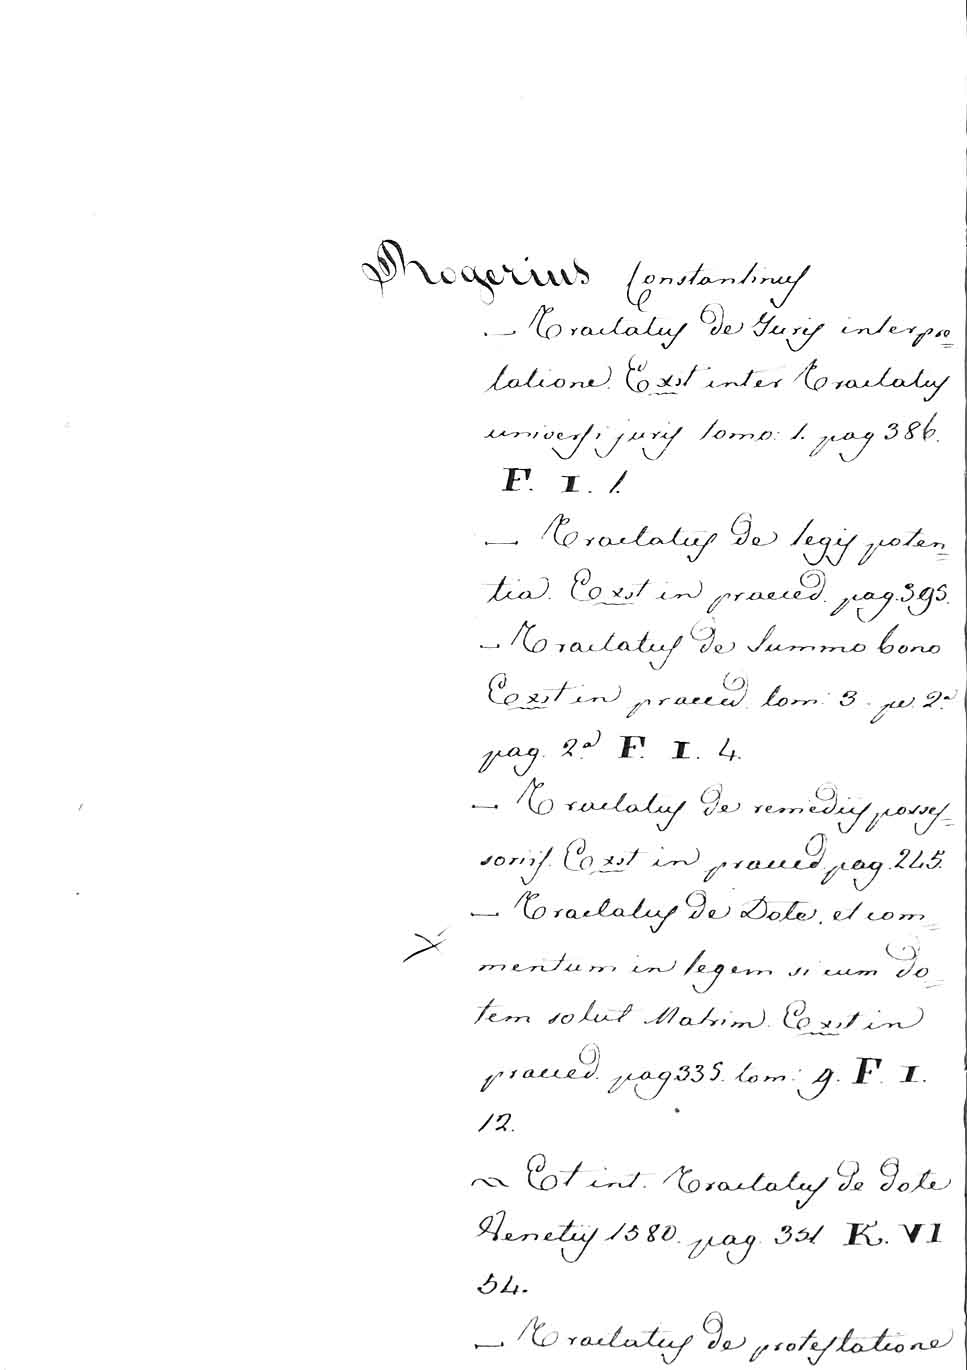 Rogerius Constantinus
— Tractatus de Juris interpre=
tatione. Exst inter Tractatus
universi juris tomo: 1. pag 386.
F. I. 1.
— Tractatus de legis poten=
tia. Exst in praeced. pag. 395.
— Tractatus de summo bono
Exst in praeced. tom: 3. p. 2.a
pag. 2.a F. I. 4.
— Tractatus de remediis posses=
soriis. Exst in praeced. pag. 245.
— Tractatus de Dote, et com=
mentum in legem si cum do=
tem solut Matrim. Exst in
praeced. pag 335. tom: 9. F. I.
12.
~ Et int. Tractatus de dote
Venetiis 1580. pag. 351 K. VI
54.
— Tractatus de protestatione